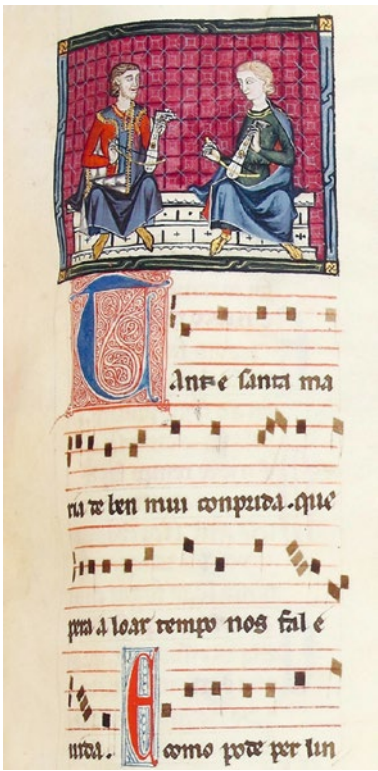 Tante santa ma
ria de ben mui conprida. que
pera a loar tempo nos fal e
uida. E como pode per lin